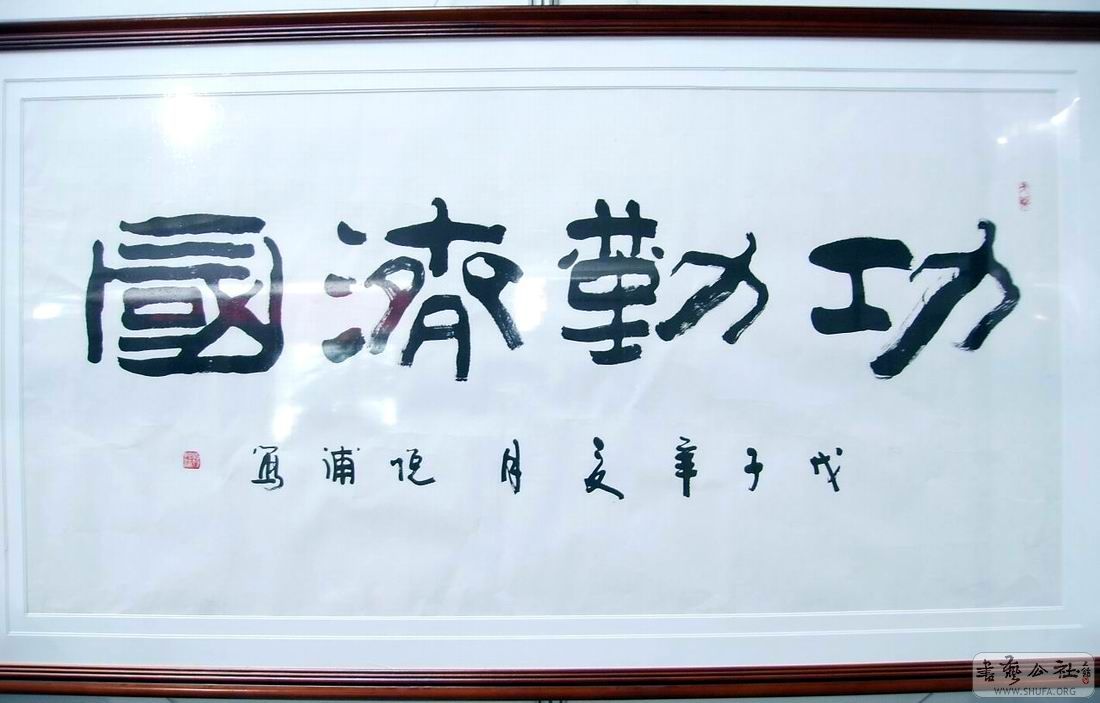 功勤濟國
戊子年夏月 浦寫
書藝公社
WWW.SHUFA.ORG